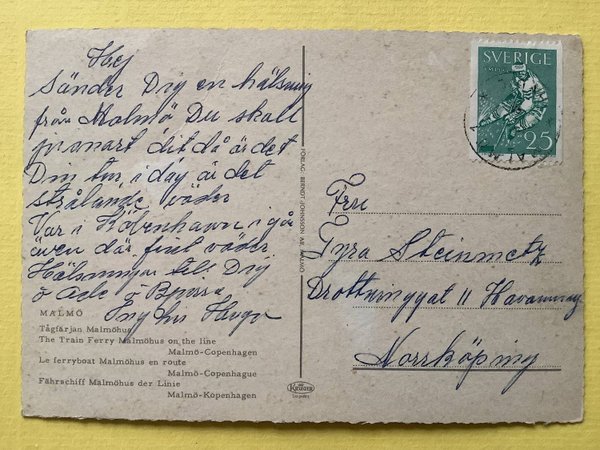 Hej
Sänder Dig en hälsning
från Malmö Du skall
snart dit då är det
Din tur, i dag är det
strålande väder
Var i Köbenhavn i går
även där fint väder
Hälsningar till Dig
o o
MALMÖ
Tågfärjan Malmöhus
The Train Ferry Malmöhus on the line
Malmö-Copenhagen
Le ferryboat Malmöhus en route
Malmö-Copenhague
Fährschiff Malmöhus der Linie
Malmö-Kopenhagen
FÖRLAG: BERNDT JOHNSSON AB. MALMÖ
KRÜGER
SVERIGE
25
Fru
Tyra Steinmetz
Drottninggat 11
Norrköping